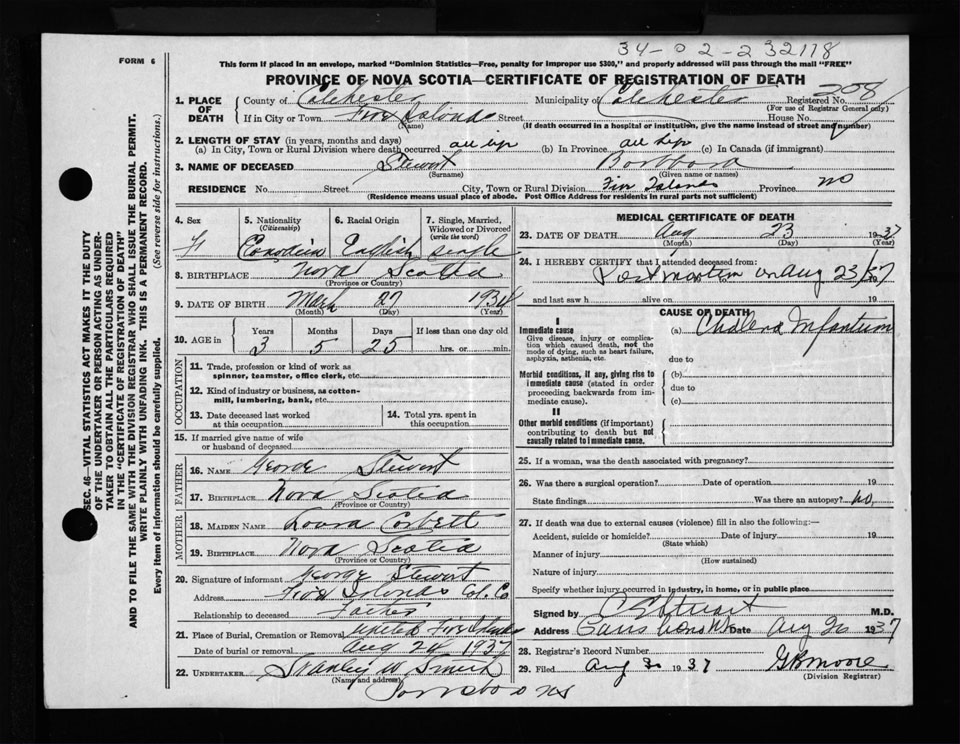 34-02-232118
FORM 6
This form if placed in an envelope, marked "Dominion Statistics—Free, penalty for improper use $300," and properly addressed will pass through the mail "FREE"
PROVINCE OF NOVA SCOTIA—CERTIFICATE OF REGISTRATION OF DEATH
1. PLACE OF DEATH County of Colchester Municipality of Colchester Registered No. 208
(For use of Registrar General only)
If in City or Town Five Islands Street House No.
(Name) (If death occurred in a hospital or institution, give the name instead of street and number)
2. LENGTH OF STAY (in years, months and days)
(a) In City, Town or Rural Division where death occurred all life (b) In Province all life (c) In Canada (if immigrant)
3. NAME OF DECEASED Stewart Barbara
(Surname) (Given name or names)
RESIDENCE No. Street City, Town or Rural Division Five Islands Province NS
(Residence means usual place of abode. Post Office Address for residents in rural parts not sufficient)
4. Sex 5. Nationality (Citizenship) 6. Racial Origin 7. Single, Married, Widowed or Divorced (write the word)
F Canadian English Single
8. BIRTHPLACE Nova Scotia
(Province or Country)
9. DATE OF BIRTH March 27 1934
(Month) (Day) (Year)
10. AGE in Years Months Days If less than one day old
3 5 25 hrs. or min.
OCCUPATION
11. Trade, profession or kind of work as spinner, teamster, office clerk, etc.
12. Kind of industry or business, as cotton-mill, lumbering, bank, etc.
13. Date deceased last worked at this occupation 14. Total yrs. spent in this occupation
15. If married give name of wife or husband of deceased
FATHER
16. NAME George Stewart
17. BIRTHPLACE Nova Scotia
(Province or Country)
MOTHER
18. MAIDEN NAME Laura Corbett
19. BIRTHPLACE Nova Scotia
(Province or Country)
20. Signature of informant George Stewart
Address Five Islands Col. Co.
Relationship to deceased Father
21. Place of Burial, Cremation or Removal United Five Islands
Date of burial or removal Aug 24 1937
22. UNDERTAKER Stanley W Smith
Parrsboro NS
MEDICAL CERTIFICATE OF DEATH
23. DATE OF DEATH Aug 23 1937
(Month) (Day) (Year)
24. I HEREBY CERTIFY that I attended deceased from:
Postmortem on Aug 23/37
to 19
and last saw h alive on 19
CAUSE OF DEATH
I
Immediate cause (a) Cholera Infantum
Give disease, injury or complication which caused death, not the mode of dying, such as heart failure, asphyxia, asthenia, etc.
due to
Morbid conditions, if any, giving rise to immediate cause (stated in order proceeding backwards from immediate cause).
(b)
due to
(c)
II
Other morbid conditions (if important) contributing to death but not causally related to immediate cause.
25. If a woman, was the death associated with pregnancy?
26. Was there a surgical operation? Date of operation 19
State findings Was there an autopsy? no
27. If death was due to external causes (violence) fill in also the following:—
Accident, suicide or homicide? Date of injury 19
(State which)
Manner of injury
(How sustained)
Nature of injury
Specify whether injury occurred in industry, in home, or in public place
Signed by M.D.
Address Date Aug 26 1937
28. Registrar's Record Number
29. Filed Aug 1937 G B Moore
(Division Registrar)
SEC. 46—VITAL STATISTICS ACT MAKES IT THE DUTY
OF THE UNDERTAKER OR PERSON ACTING AS UNDER-
TAKER TO OBTAIN ALL THE PARTICULARS REQUIRED
IN THE "CERTIFICATE OF REGISTRATION OF DEATH"
AND TO FILE THE SAME WITH THE DIVISION REGISTRAR WHO SHALL ISSUE THE BURIAL PERMIT.
WRITE PLAINLY WITH UNFADING INK. THIS IS A PERMANENT RECORD.
Every item of information should be carefully supplied. (See reverse side for instructions.)